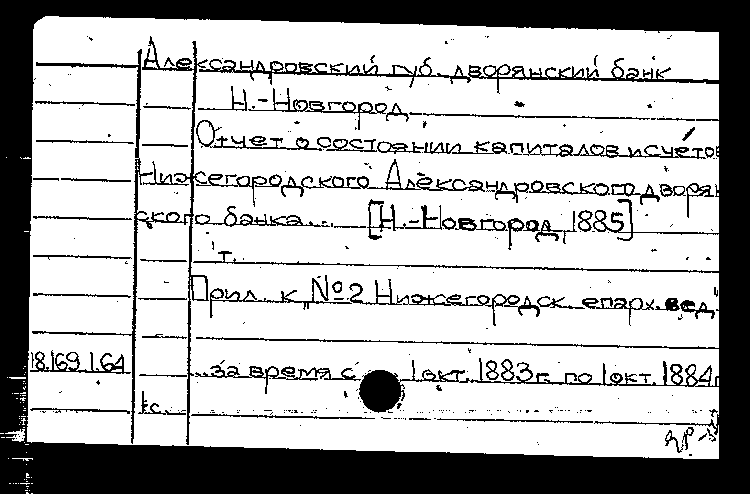 Александровский губ. дворянский банк
Н.-Новгород
Отчет о состоянии капиталов и счетов
Нижегородского Александровского дворян
ского банка... [Н.-Новгород, 1885]
т.
Прил. к „№2 Нижегородск. епарх. вед."
18.169.1.64 ...за время с 1 окт. 1883 г. по 1 окт. 1884 г
с.